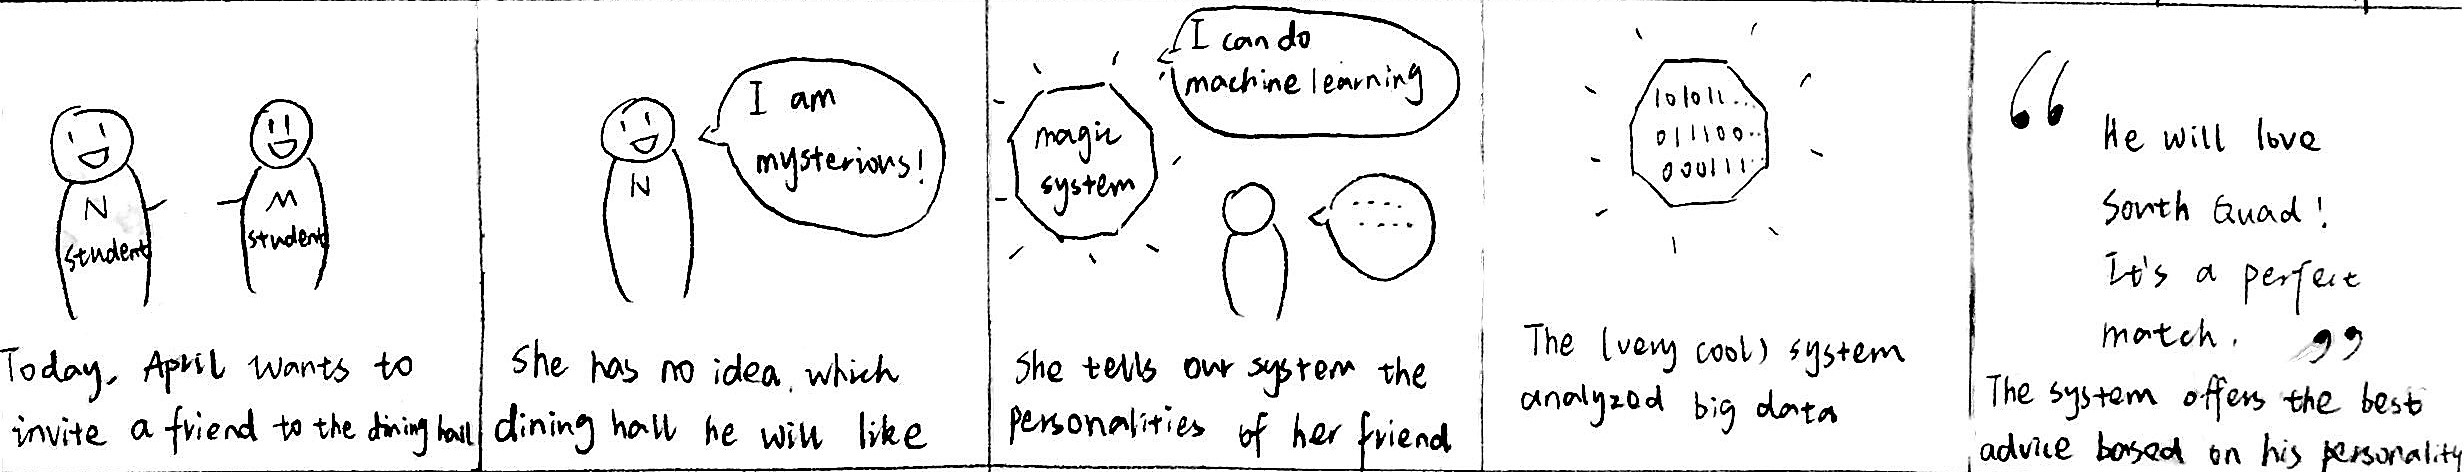 N
student
M
student
Today, April wants to
invite a friend to the dining hall
I am
mysterious!
N
She has no idea, which
dining hall he will like
I can do
machine learning
magic
system
.....
.....
She tells our system the
personalities of her friend
101011...
011100..
000111..
The (very cool) system
analyzed big data
“ He will love
South Quad!
It's a perfect
match. ”
The system offers the best
advice based on his personality